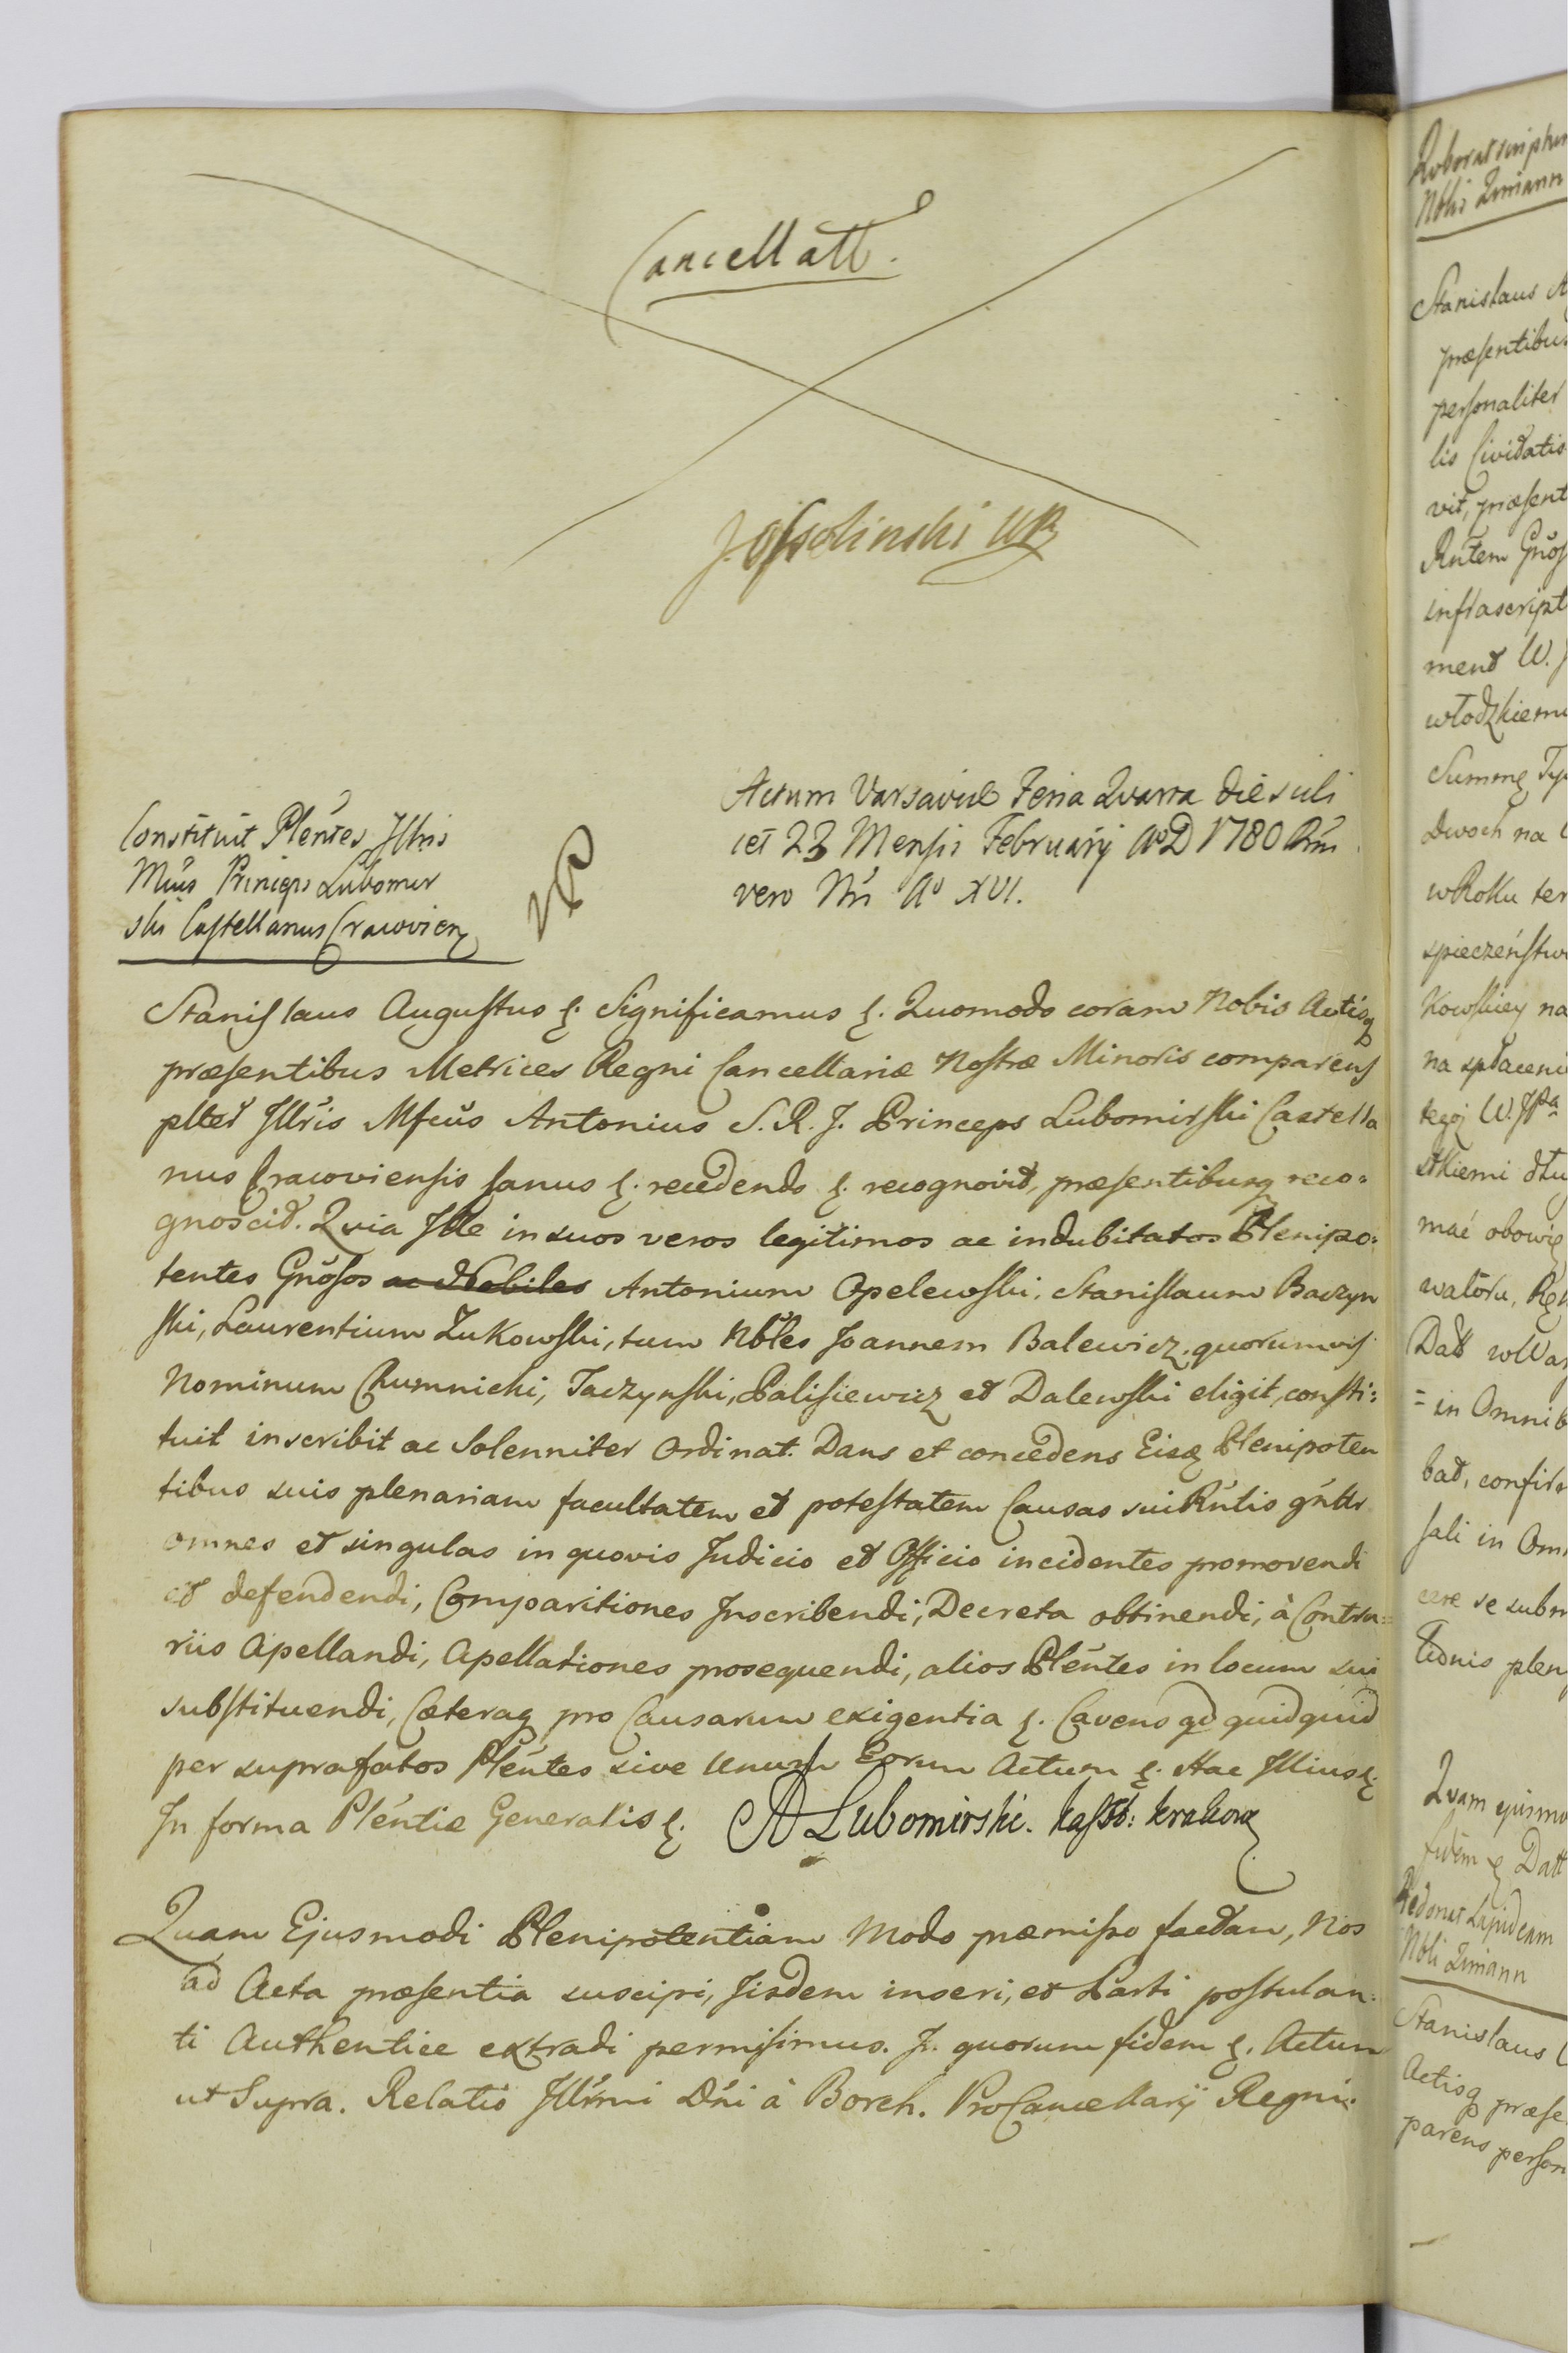 Cancellatt.
J. Ossolinski WR
Actum Varsaviæ Feria Quarta die scili
cet 23 Mensis Februarÿ A°D 1780 Rni
vero Nri A° XVI.
Constituit Plentes Illris
Mcus Princeps Lubomir
ski Castellanus Cracovien
Stanislaus Augustus &. Significamus &. Quomodo coram Nobis Actisq
præsentibus Metrices Regni Cancellariæ Nostræ Minoris comparens
plter Illris Mfcus Antonius S. R. J. Princeps Lubomirski Castella
nus Cracoviensis sanus &. recedendo &. recognovit, præsentibusq reco=
gnoscit. Quia Ille in suos veros legitimos ac indubitatos Plenipo:
tentes Gnosos ac Nobiles Antonium Opelewski, Stanislaum Baczyn
ski, Laurentium Zukowski, tum Nbles Joannem Balewicz, quorumvis
Nominum Chumnicki, Jaczynski, Palisiewicz et Dalewski eligit, consti:
tuit inscribit ac Solenniter Ordinat. Dans et concedens Eisq Plenipoten
tibus suis plenariam facultatem et potestatem Causas sui Rntis gnltr
omnes et singulas in quovis Judicio et Officio incidentes promovendi
et defendendi, Comparitiones Inscribendi, Decreta obtinendi, à Contra=
riis Apellandi, Apellationes prosequendi, alios Plentes in locum sui
substituendi, Cæteraq pro Causarum exigentia &. Cavens qd quidquid
per suprafatos Plentes sive Unum Eorum Actum &. Hac Illius &.
In forma Plentiæ Generalis &. A Lubomirski. kaszt: krakow
Quam Ejusmodi Plenipotentiam Modo præmisso factam, Nos
ad Acta præsentia suscipi, Iisdem inseri, et Parti postulan:
ti Authentice extradi permisimus. In quorum fidem &. Actum
ut Supra. Relatio Illrmi Dni à Borch. ProCancellarÿ Regni.
Stanislaus
præsentibus
personaliter
lis Civitatis
vit, præsent
Rntem Gnos
infrascript
ment W.
włodzkiemu
Summę Ty
Dwoch na
w Roku ter
spieczeństwo
kowskiey na
na spłaceni
tegoj W. JPa
mać obowię
= in Omnib
bat, confirm
sali in Om
cere se subm
Quam ejusmo
fidem & Datt
Stanislaus
Actisq præse
parens person